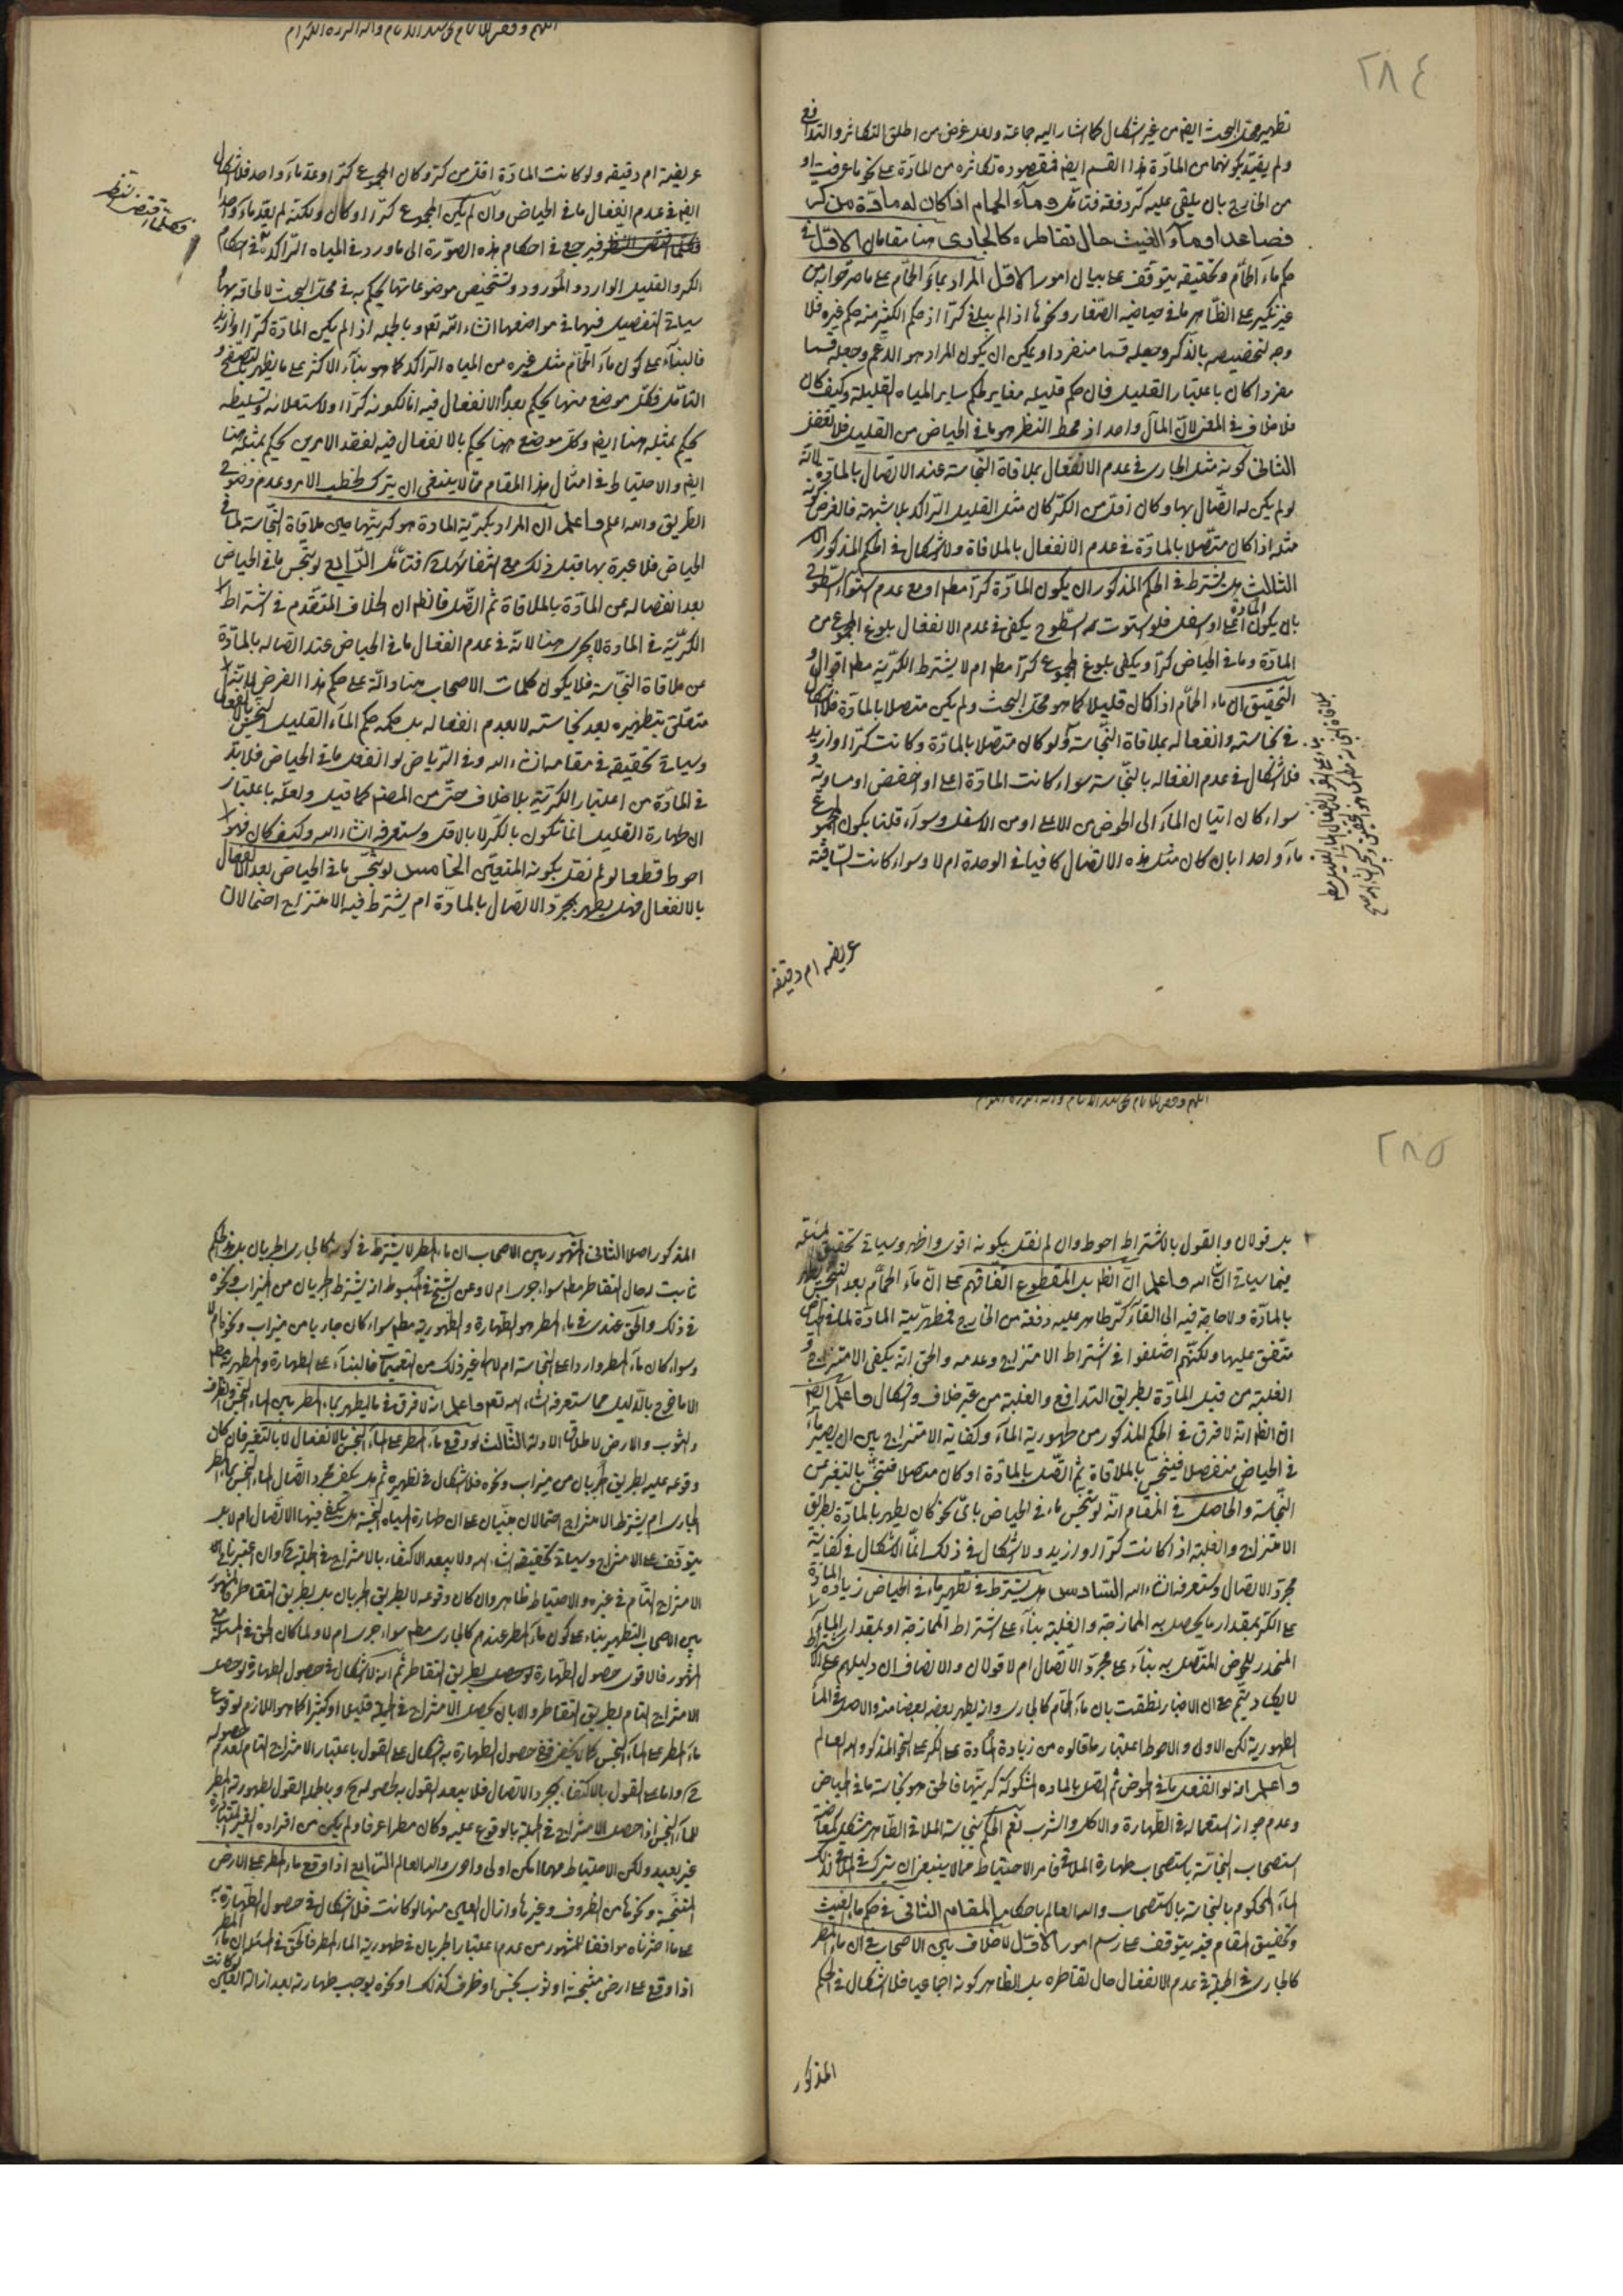 ٢٨٤
تطهير محل البحث ايضا من غير اشكال كما اشار اليه جماعة ولعله غرض من اطلق التكاثر والتدافع
ولم يقيد بكونهما من المادة هذا القسم ايضا فمقصوده تكاثره من المادة على نحو ما عرفت او
من الخارج بان يلقى عليه كر دفعة فتامل وماء الحمام اذا كان له مادة من كر
فصاعدا وماء الغيث حال تقاطره كالجارى هنا مقامان الاول في
حكم ماء الحمام وتحقيقه يتوقف على بيان امور الاول المراد بماء الحمام على ما صرحوا به من
غير نكير على الظاهر ما في حياضه الصغار ونحوها اذا لم يبلغ كرا اذ حكم الكثير منه حكم غيره فلا
وجه لتخصيصه بالذكر وجعله قسما منفردا ويمكن ان يكون المراد هو الاعم وجعله قسما
مفردا كان باعتبار القليل فان حكم قليله مغاير لحكم ساير المياه القليلة وكيف كان
فلا خلاف في المعنى لان المآل واحد اذ محط النظر هو ما في الحياض من القليل فلا تغفل
الثاني كونه مثل الجارى في عدم الانفعال بملاقاة النجاسة عند الاتصال بالمادة لانه
لو لم يكن له اتصال بها وكان اقل من الكر كان مثل القليل الراكد بلا شبهة فالغرض كونه
مثله اذا كان متصلا بالمادة في عدم الانفعال بالملاقاة ولا اشكال في الحكم المذكور
الثالث هل يشترط في الحكم المذكور ان يكون المادة كرا مطلقا او مع عدم استواء السطوح
بان يكون المادة اعلى او اسفل فلو استوت السطوح يكفى في عدم الانفعال بلوغ المجموع من
المادة وما في الحياض كرا او يكفى بلوغ المجموع كرا مطلقا ام لا يشترط الكرية مطلقا اقوال و
التحقيق ان ماء الحمام اذا كان قليلا كما هو محل البحث ولم يكن متصلا بالمادة فلا اشكال
في نجاسته وانفعاله بملاقاة النجاسة ولو كان متصلا بالمادة وكانت كرا او ازيد
فلا اشكال في عدم انفعاله بالنجاسة سواء كانت المادة اعلى او اخفض او مساوية و
سواء كان اتيان الماء الى الحوض من الاعلى او من الاسفل وسواء قلنا بكون المجموع
ماء واحدا بان كان مثل هذه الاتصال كافيا في الوحدة ام لا وسواء كانت الساقية
عريضه ام دقيقه
عريضة ام دقيقة ولو كانت المادة اقل من كر وكان المجموع كرا وعد ماء واحد فلا اشكال
ايضا في عدم انفعال ما في الحياض وان لم يكن المجموع كرا او كان ولكنه لم يعد ماء واحدا
فيرجع في احكام هذه الصورة الى ما ورد في المياه الراكدة في احكام
الكر والقليل الوارد والمورود وتشخيص موضوعاتها ليحكم به في محل البحث لالحاقه بها
سياتى التفصيل فيها في مواضعها انشاء الله تعالى وبالجملة اذا لم يكن المادة كرا او ازيد
فالبناء على كون ماء الحمام مثل غيره من المياه الراكدة كما هو بناء الاكثر على ما يظهر
التامل فكل موضع منها يحكم بعدم الانفعال فيه اما لكونه كرا او لاستعلائه وتسلطه
يحكم بمثله هنا ايضا وكل موضع هنا يحكم بالانفعال فيه لفقد الامرين يحكم بمثله هنا
ايضا والاحتياط في امثال هذا المقام مما لا ينبغى ان يترك لخطب الامر وعدم وضوح
الطريق والله اعلم واعلم ان المراد بكرية المادة هو كريتها حين ملاقاة النجاسة لما في
الحياض فلا عبرة بها قبل ذلك مع انتفائها فتامل الرابع لو تنجس ما في الحياض
بعد انفصاله عن المادة بالملاقاة ثم اتصل فالظاهر ان الخلاف المتقدم في اشتراط
الكرية في المادة لا يجرى هنا لانه في عدم انفعال ما في الحياض عند اتصاله بالمادة
عن ملاقاة النجاسة فلا يكون كلمات الاصحاب هنا دالة على حكم هذا الفرض
متعلق بتطهيره بعد نجاسته لا بعدم انفعاله بل حكمه حكم الماء القليل النجس
وسياتى تحقيقه في مقامه انشاء الله وفى الرياض لو انفعل ما في الحياض فلا بد
في المادة من اعتبار الكرية بلا خلاف حتى من المصنف كما قيل ولعله باعتبار
ان طهارة القليل انما تكون بالكر لا بالاقل وستعرفه انشاء الله وكيف كان فهو
احوط قطعا لو لم نقل بكونه المتعين الخامس لو تنجس ما في الحياض بعد انفعال
بالانفعال فهل يطهر بمجرد الاتصال بالمادة ام يشترط فيه الامتزاج احتمالان
٢٨٥
بل قولان والقول بالاشتراط احوط وان لم نقل بكونه اقوى واظهر وسياتى تحقيق
فيما سياتى انشاء الله واعلم ان الظاهر بل المقطوع اتفاقهم على ان ماء الحمام بعد التنجيس يطهر
بالمادة ولا حاجة فيه الى القاء كر طاهر عليه دفعة من الخارج فمطهرية المادة لما في الحياض
متفق عليها ولكنهم اختلفوا في اشتراط الامتزاج وعدمه والحق انه يكفى الامتزاج و
الغلبة من قبل المادة بطريق التدافع والغلبة من غير خلاف واشكال واعلم ايضا
ان الظاهر انه لا فرق في الحكم المذكور من طهورية الماء وكفاية الامتزاج بين ان يصير ماء
في الحياض منفصلا فينجس بالملاقاة ثم اتصل بالمادة او كان متصلا فتنجس بالتغير من
النجاسة والحاصل في المقام انه لو تنجس ماء في الحياض باى نحو كان يطهر بالمادة بطريق
الامتزاج والغلبة اذا كانت كرا او ازيد ولا اشكال في ذلك انما الاشكال في كفاية
مجرد الاتصال وستعرفه انشاء الله السادس هل يشترط في تطهير ماء في الحياض زيادة المادة
على الكر بمقدار ما يحصل به الممازجة والغلبة بناء على اشتراط الممازجة او بمقدار الماء
المنحدر للحوض المتصل به بناء على مجرد الاتصال ام لا قولان والانصاف ان دليلهم على الاشتراط
لا يكاد يتم مع ان الاخبار نطقت بان ماء الحمام كالجارى وانه يطهر بعضه بعضا منه والاصل في الماء
الطهورية لكن الاولى والاحوط اعتبار ما قالوه من زيادة المادة على الكر على النحو المذكور والله العالم
واعلم انه لو انفعل ما في الحوض ثم اتصل بالمادة المشكوكة كريتها فالحق هو نجاسة ما في الحياض
وعدم جواز استعماله في الطهارة والاكل والشرب نعم الحكم بنجاسة الملاقى الطاهر مشكل لمعارضة
استصحاب النجاسة باستصحاب طهارة الملاقى فامر الاحتياط مما لا ينبغى ان يترك في الملاقى لذلك
الماء المحكوم بالنجاسة بالاستصحاب والله العالم باحكامه المقام الثانى في حكم ماء الغيث
وتحقيق المقام فيه يتوقف على رسم امور الاول لا خلاف بين الاصحاب في ان ماء المطر
كالجارى في الجملة في عدم الانفعال حال تقاطره بل الظاهر كونه اجماعيا فلا اشكال في الحكم
المذكور
المذكور اصلا الثانى المشهور بين الاصحاب ان ماء المطر لا يشترط في كونه كالجارى الجريان بل هذا الحكم
ثابت له حال التقاطر مطلقا سواء جرى ام لا وعن الشيخ في المبسوط انه يشترط الجريان من الميزاب ونحوه
في ذلك والحق عندى في ماء المطر هو الطهارة والطهورية مطلقا سواء كان جاريا من ميزاب ونحوه ام لا
وسواء كان ماء المطر واردا على النجاسة ام لا الى غير ذلك من التعميمات فالبناء على الطهارة والمطهرية مطلقا
الا ما خرج بالدليل مما ستعرفه انشاء الله تعالى واعلم انه لا فرق في ما يطهر بماء المطر بين الماء النجس والظرف
والثوب والارض لاطلاق الادلة الثالث لو وقع ماء المطر على الماء النجس بالانفعال لا بالتغير فان كان
وقوعه عليه بطريق الجريان من ميزاب ونحوه فلا اشكال في تطهيره ثم هل يكفى مجرد اتصال الماء النجس بماء المطر
الجارى ام يشترط الامتزاج احتمالان مبنيان على ان طهارة المياه النجسة هل يكفى فيها الاتصال ام لا بل
يتوقف على الامتزاج وسياتى تحقيقه انشاء الله ولا يبعد الاكتفاء بالامتزاج في الجملة
الامتزاج التام في غيره والاحتياط ظاهر وان كان وقوعه لا بطريق الجريان بل بطريق التقاطر فالمشهور
بين الاصحاب التطهير بناء على كون ماء المطر عندهم كالجارى مطلقا سواء جرى ام لا ولما كان الحق في المسئلة مع
المشهور فالاقوى حصول الطهارة لو حصل بطريق التقاطر ثم انه لا اشكال في حصول الطهارة لو حصل
الامتزاج التام بطريق التقاطر والا بان يحصل الامتزاج في الجملة قليلا او كثيرا كما هو اللازم لوقوع
ماء المطر على الماء النجس كما لا يخفى ففى حصول الطهارة به اشكال على القول باعتبار الامتزاج التام لعدم حصوله
واما على القول بالاكتفاء بمجرد الاتصال فلا يبعد القول به لحصوله وبالجملة القول بطهورية المطر
للماء النجس اذا حصل الامتزاج في الجملة بالوقوع عليه وكان مطرا عرفا ولم يكن من افراده الغير المتبادرة
غير بعيد ولكن الاحتياط مهما امكن اولى واحرى والله العالم الرابع اذا وقع ماء المطر على الارض
المتنجسة ونحوها من الظروف وغيرها وازال العين منها لو كانت فلا اشكال في حصول الطهارة به
على ما اخترناه موافقا للمشهور من عدم اعتبار الجريان في طهورية الماء المطر فالحق في المسئلة ان ماء المطر
اذا وقع على ارض متنجسة او ثوب نجس او ظرف كذلك او نحوه يوجب طهارته بعد ازالة العين لو كانت